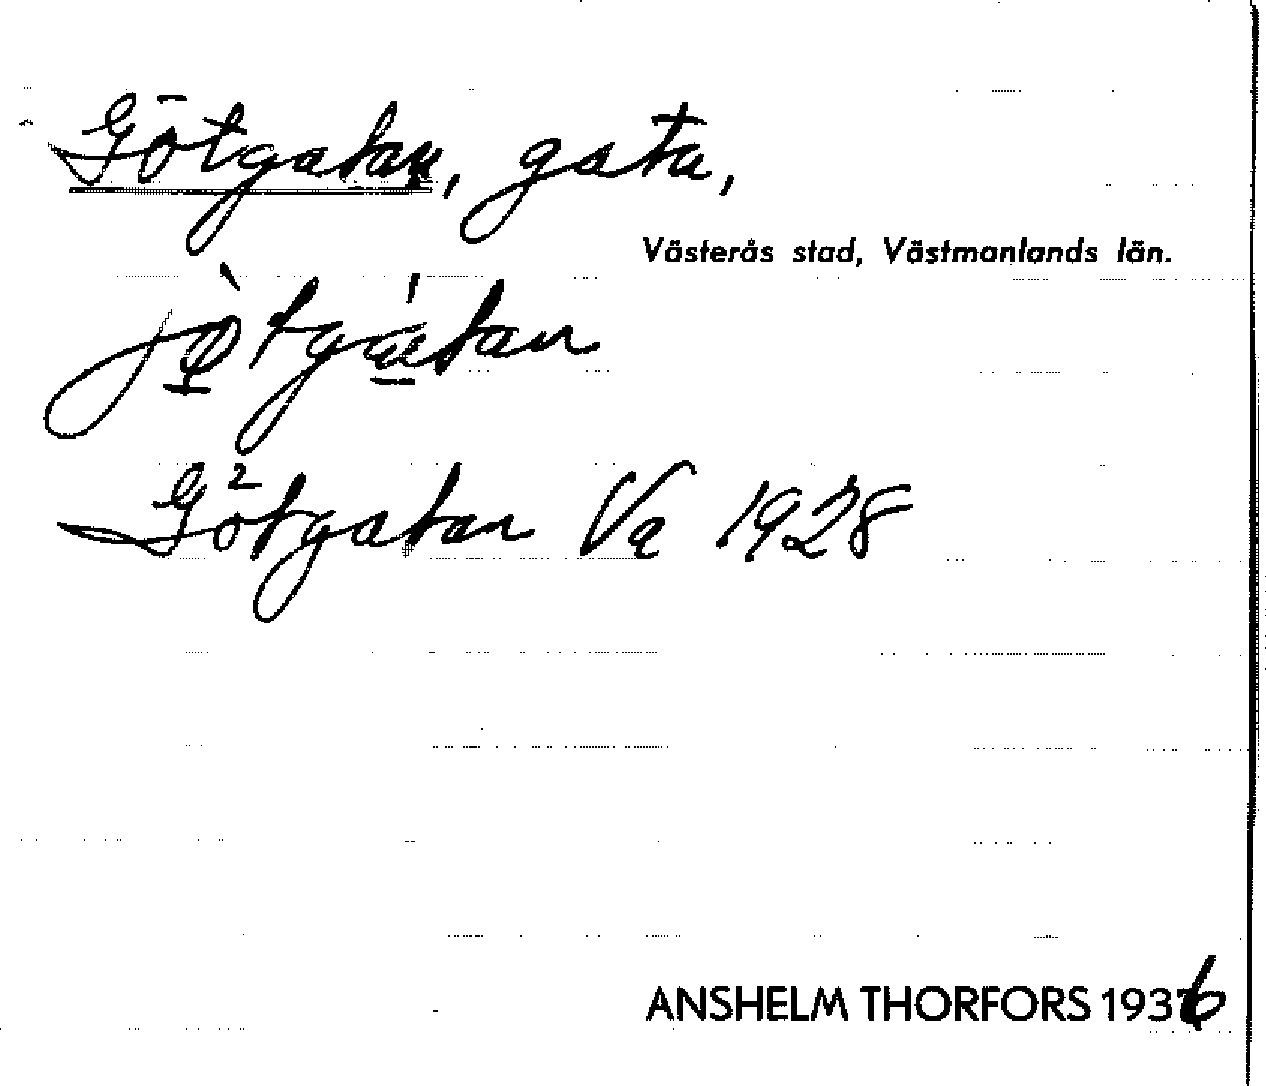 Götgatan, gata,
Västerås stad, Västmanlands län.
jø̀tgátan
Götgatan Va 1928
ANSHELM THORFORS 1936